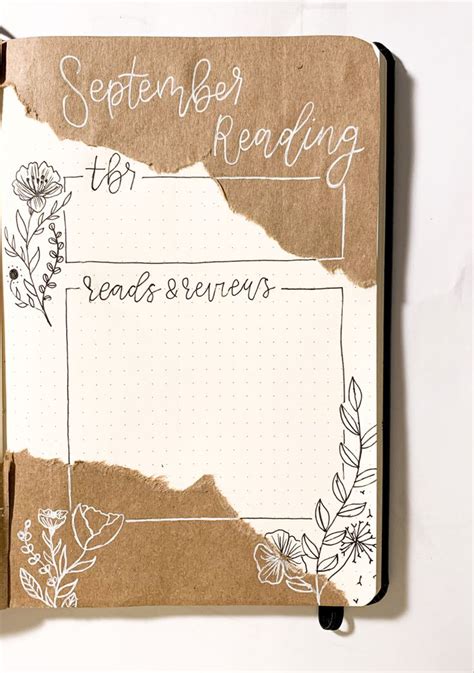 September
Reading
tbr
reads & reviews